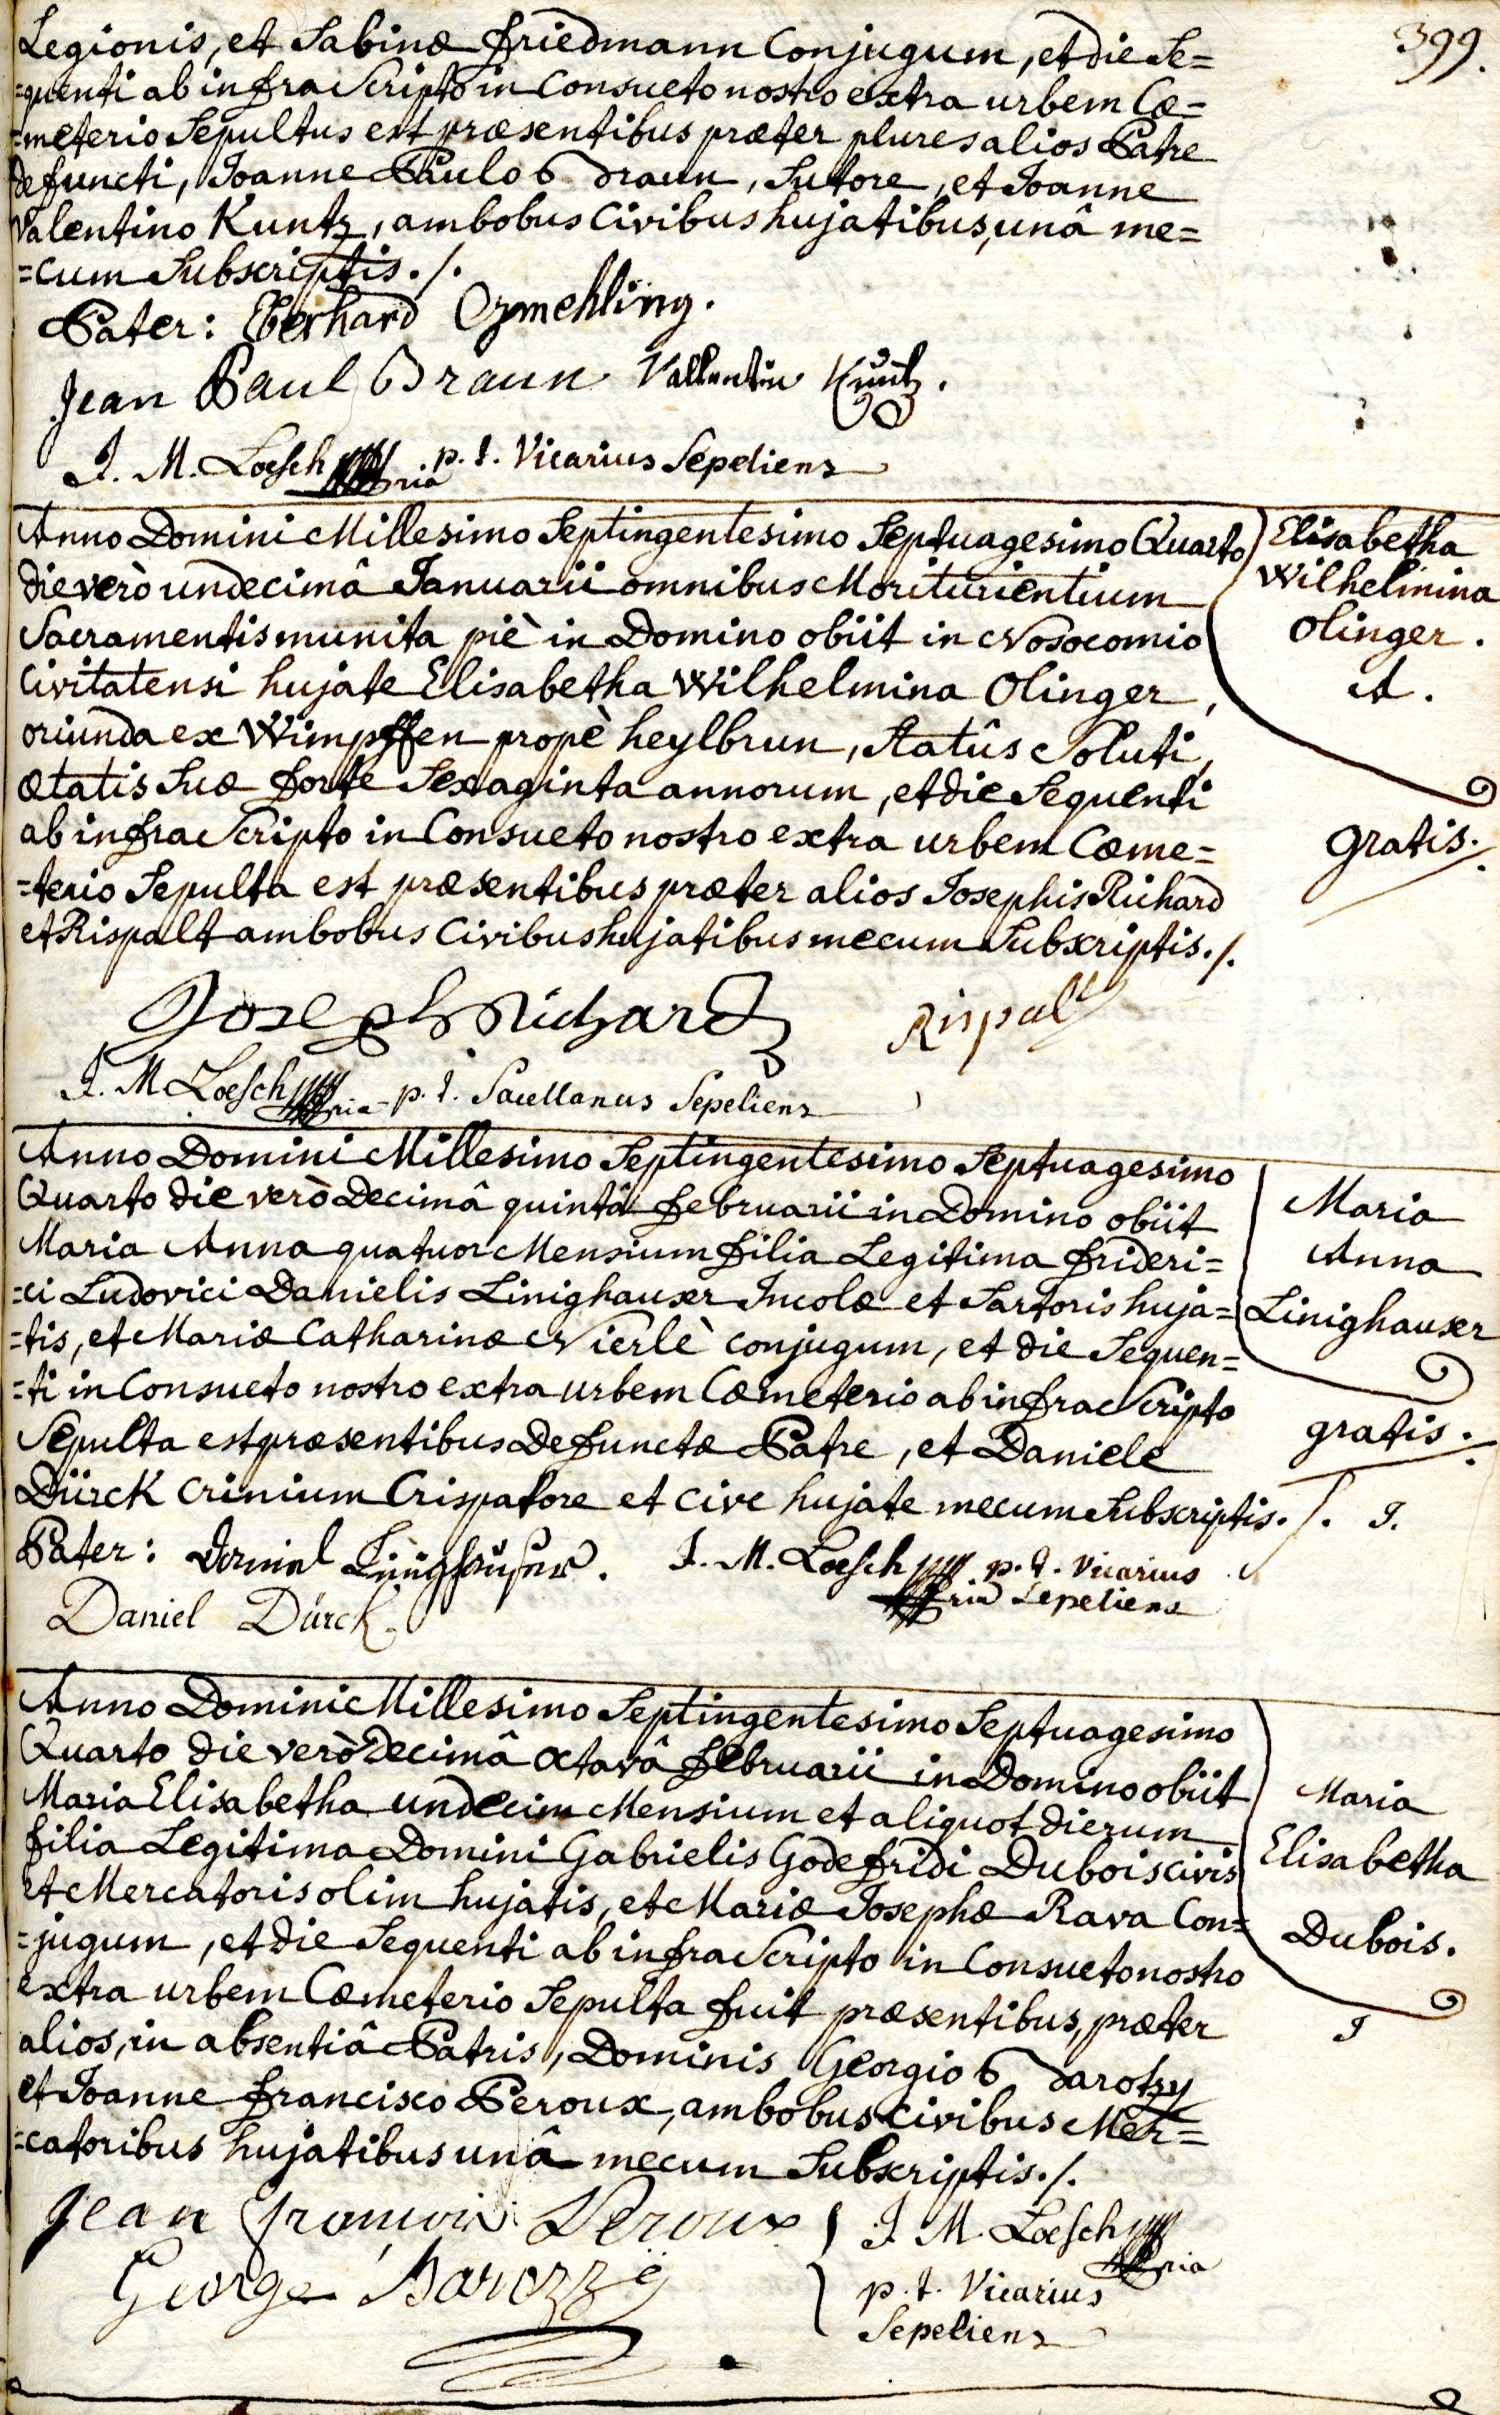 399.
Legionis, et Sabinæ Friedmann Conjugum, et die Se=
=quenti ab infra Scripto in Consueto nostro extra urbem Cœ=
=meterio Sepultus est præsentibus præter plures alios Patre
defuncti, Joanne Paulo Braun, Sutore, et Joanne
Valentino Kuntz, ambobus Civibus hujatibus, unâ me=
=cum Subscriptis ./.
Pater: Eberhard
Jean Paul Braun Vallentin Kuntz.
J. M. Loesch mpria p. t. Vicarius Sepeliens
Anno Domini Millesimo Septingentesimo Septuagesimo Quarto
die verò undecimâ Januarii omnibus Moriturientium
Sacramentis munita piè in Domino obiit in Nosocomio
Civitatensi hujate Elisabetha Wilhelmina Olinger,
oriunda ex Wimpffen propè heylbrun, Statûs Soluti,
ætatis Suæ forte Sexaginta annorum, et die Sequenti
ab infra Scripto in Consueto nostro extra urbem Cœme=
=terio Sepulta est præsentibus præter alios Josephis Richard
et Rispalt ambobus Civibus hujatibus mecum Subscriptis ./.
Elisabetha
Wilhelmina
Olinger.
A.
gratis.
Joseph Richard Rispalt
J. M Loesch mpria p. t. Sacellanus Sepeliens
Anno Domini Millesimo Septingentesimo Septuagesimo
Quarto die verò Decimâ quintâ Februarii in Domino obiit
Maria Anna quatuor Mensium filia Legitima Frideri=
=ci Ludovici Danielis Linighauser Incolæ et Sartoris huja=
=tis, et Mariæ Catharinæ Nierlè conjugum, et die Sequen=
=ti in Consueto nostro extra urbem Cœmeterio ab infra Scripto
Sepulta est præsentibus Defunctæ Patre, et Daniele
Dürck Crinium Crispatore et cive hujate mecum Subscriptis ./.
Maria
Anna
Linighauser
gratis.
J.
Pater: Daniel Linighäuser. J. M. Loesch mpria p. t. Vicarius
Sepeliens
Daniel Dürck
Anno Domini Millesimo Septingentesimo Septuagesimo
Quarto die verò Decimâ Octavâ Februarii in Domino obiit
Maria Elisabetha undecim Mensium et aliquot dierum
filia Legitima Domini Gabrielis Godefridi Dubois civis
et Mercatoris olim hujatis, et Mariæ Josephæ Rava Con=
=jugum, et die Sequenti ab infra Scripto in Consueto nostro
extra urbem Cœmeterio Sepulta fuit præsentibus, præter
alios, in absentiâ Patris, Dominis Georgio Barotzy
et Joanne Francisco Peroux, ambobus Civibus Mer=
=catoribus hujatibus unâ mecum Subscriptis ./.
Maria
Elisabetha
Dubois.
J
Jean François Peroux
George Barozzÿ
J. M. Loesch mpria
p. t. Vicarius
Sepeliens